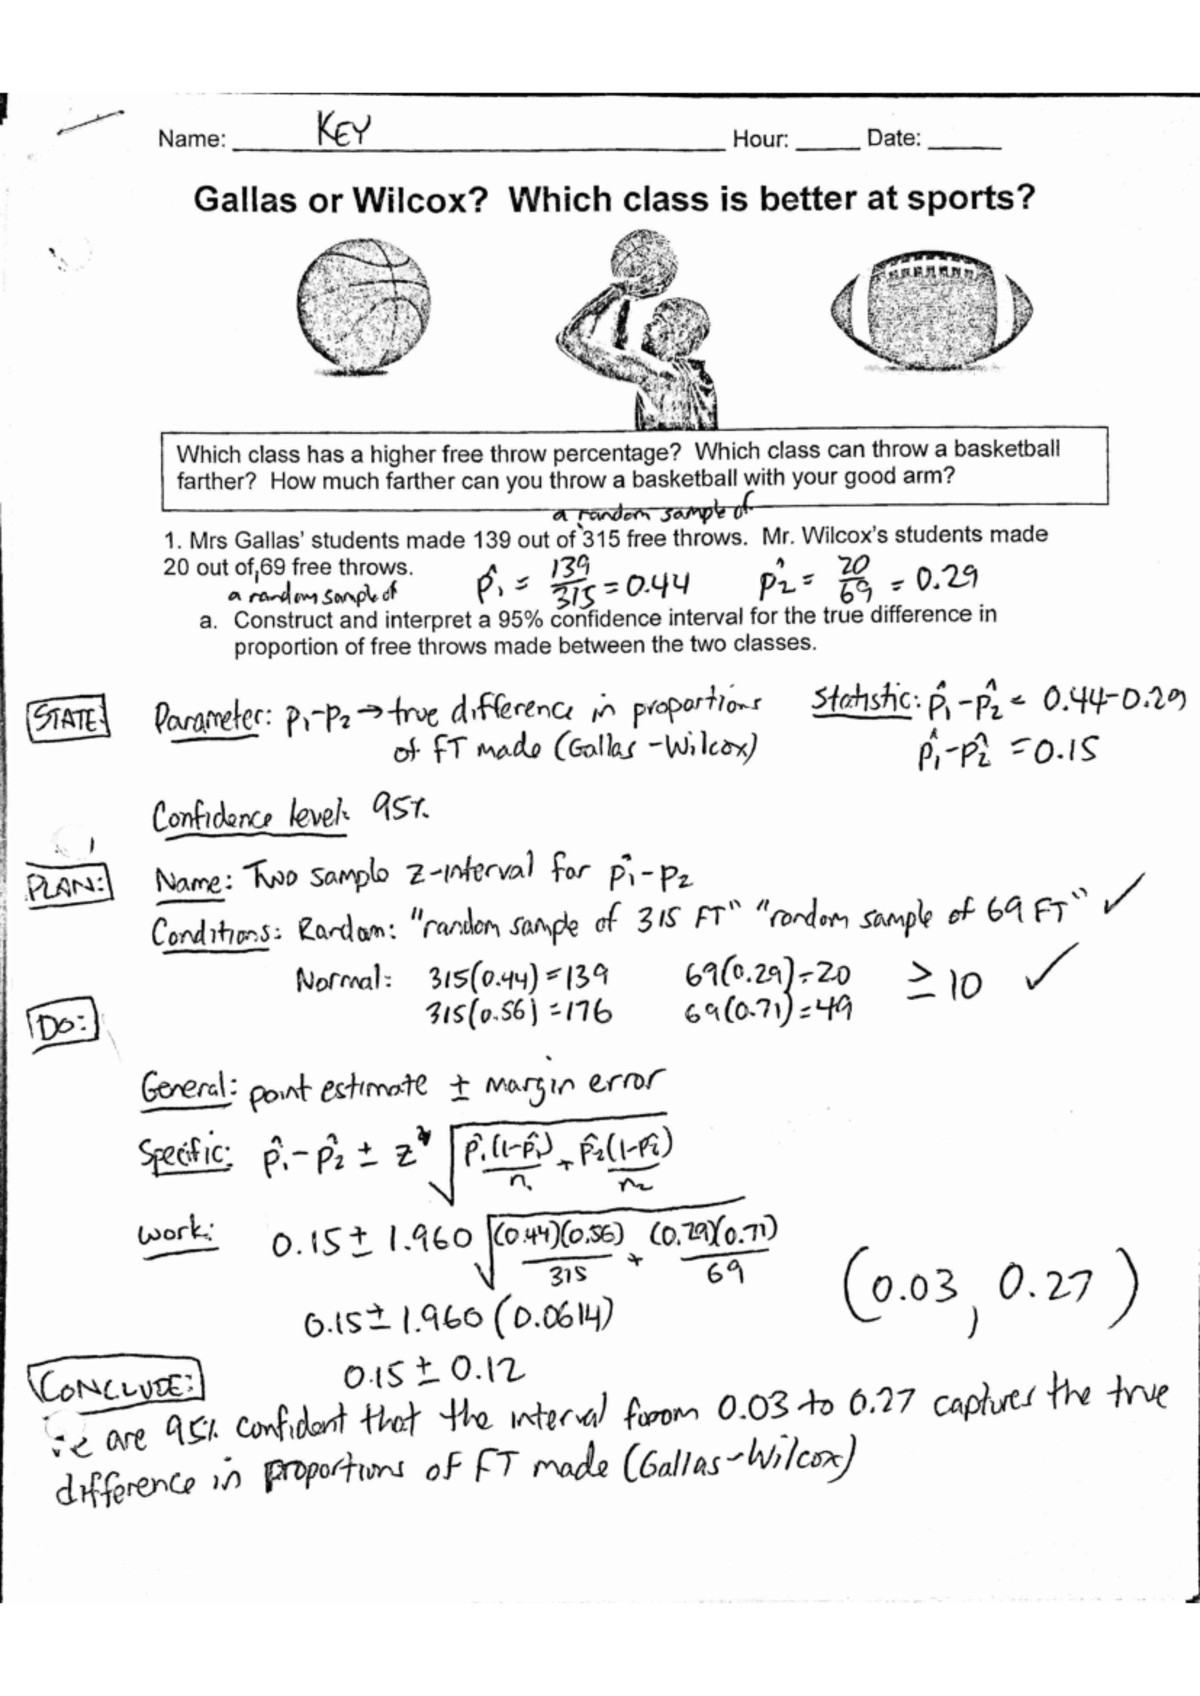 Name: KEY Hour: Date:
Gallas or Wilcox? Which class is better at sports?
Which class has a higher free throw percentage? Which class can throw a basketball
farther? How much farther can you throw a basketball with your good arm?
a random sample of
1. Mrs Gallas' students made 139 out of 315 free throws. Mr. Wilcox's students made
20 out of 69 free throws. p̂₁ = 139/315 = 0.44 p̂₂ = 20/69 = 0.29
a random sample of
a. Construct and interpret a 95% confidence interval for the true difference in
proportion of free throws made between the two classes.
STATE: Parameter: p₁-p₂ → true difference in proportions Statistic: p̂₁-p̂₂ = 0.44-0.29
of FT made (Gallas - Wilcox) p̂₁-p̂₂ = 0.15
Confidence level: 95%
PLAN: Name: Two sample z-interval for p̂₁-p₂
Conditions: Random: "random sample of 315 FT" "random sample of 69 FT" ✓
Normal: 315(0.44)=139 69(0.29)=20 ≥ 10 ✓
315(0.56)=176 69(0.71)=49
DO:
General: point estimate ± margin error
Specific: p̂₁-p̂₂ ± z* √(p̂₁(1-p̂₁)/n₁ + p̂₂(1-p̂₂)/n₂)
work: 0.15 ± 1.960 √((0.44)(0.56)/315 + (0.29)(0.71)/69)
(0.03, 0.27)
0.15 ± 1.960 (0.0614)
0.15 ± 0.12
CONCLUDE:
We are 95% confident that the interval from 0.03 to 0.27 captures the true
difference in proportions of FT made (Gallas-Wilcox)